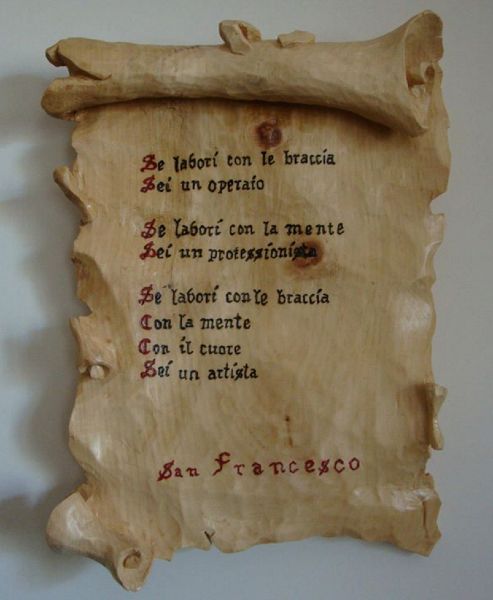 Se labori con le braccia
Sei un operaio
Se labori con la mente
Sei un professionista
Se labori con le braccia
Con la mente
Con il cuore
Sei un artista
San Francesco